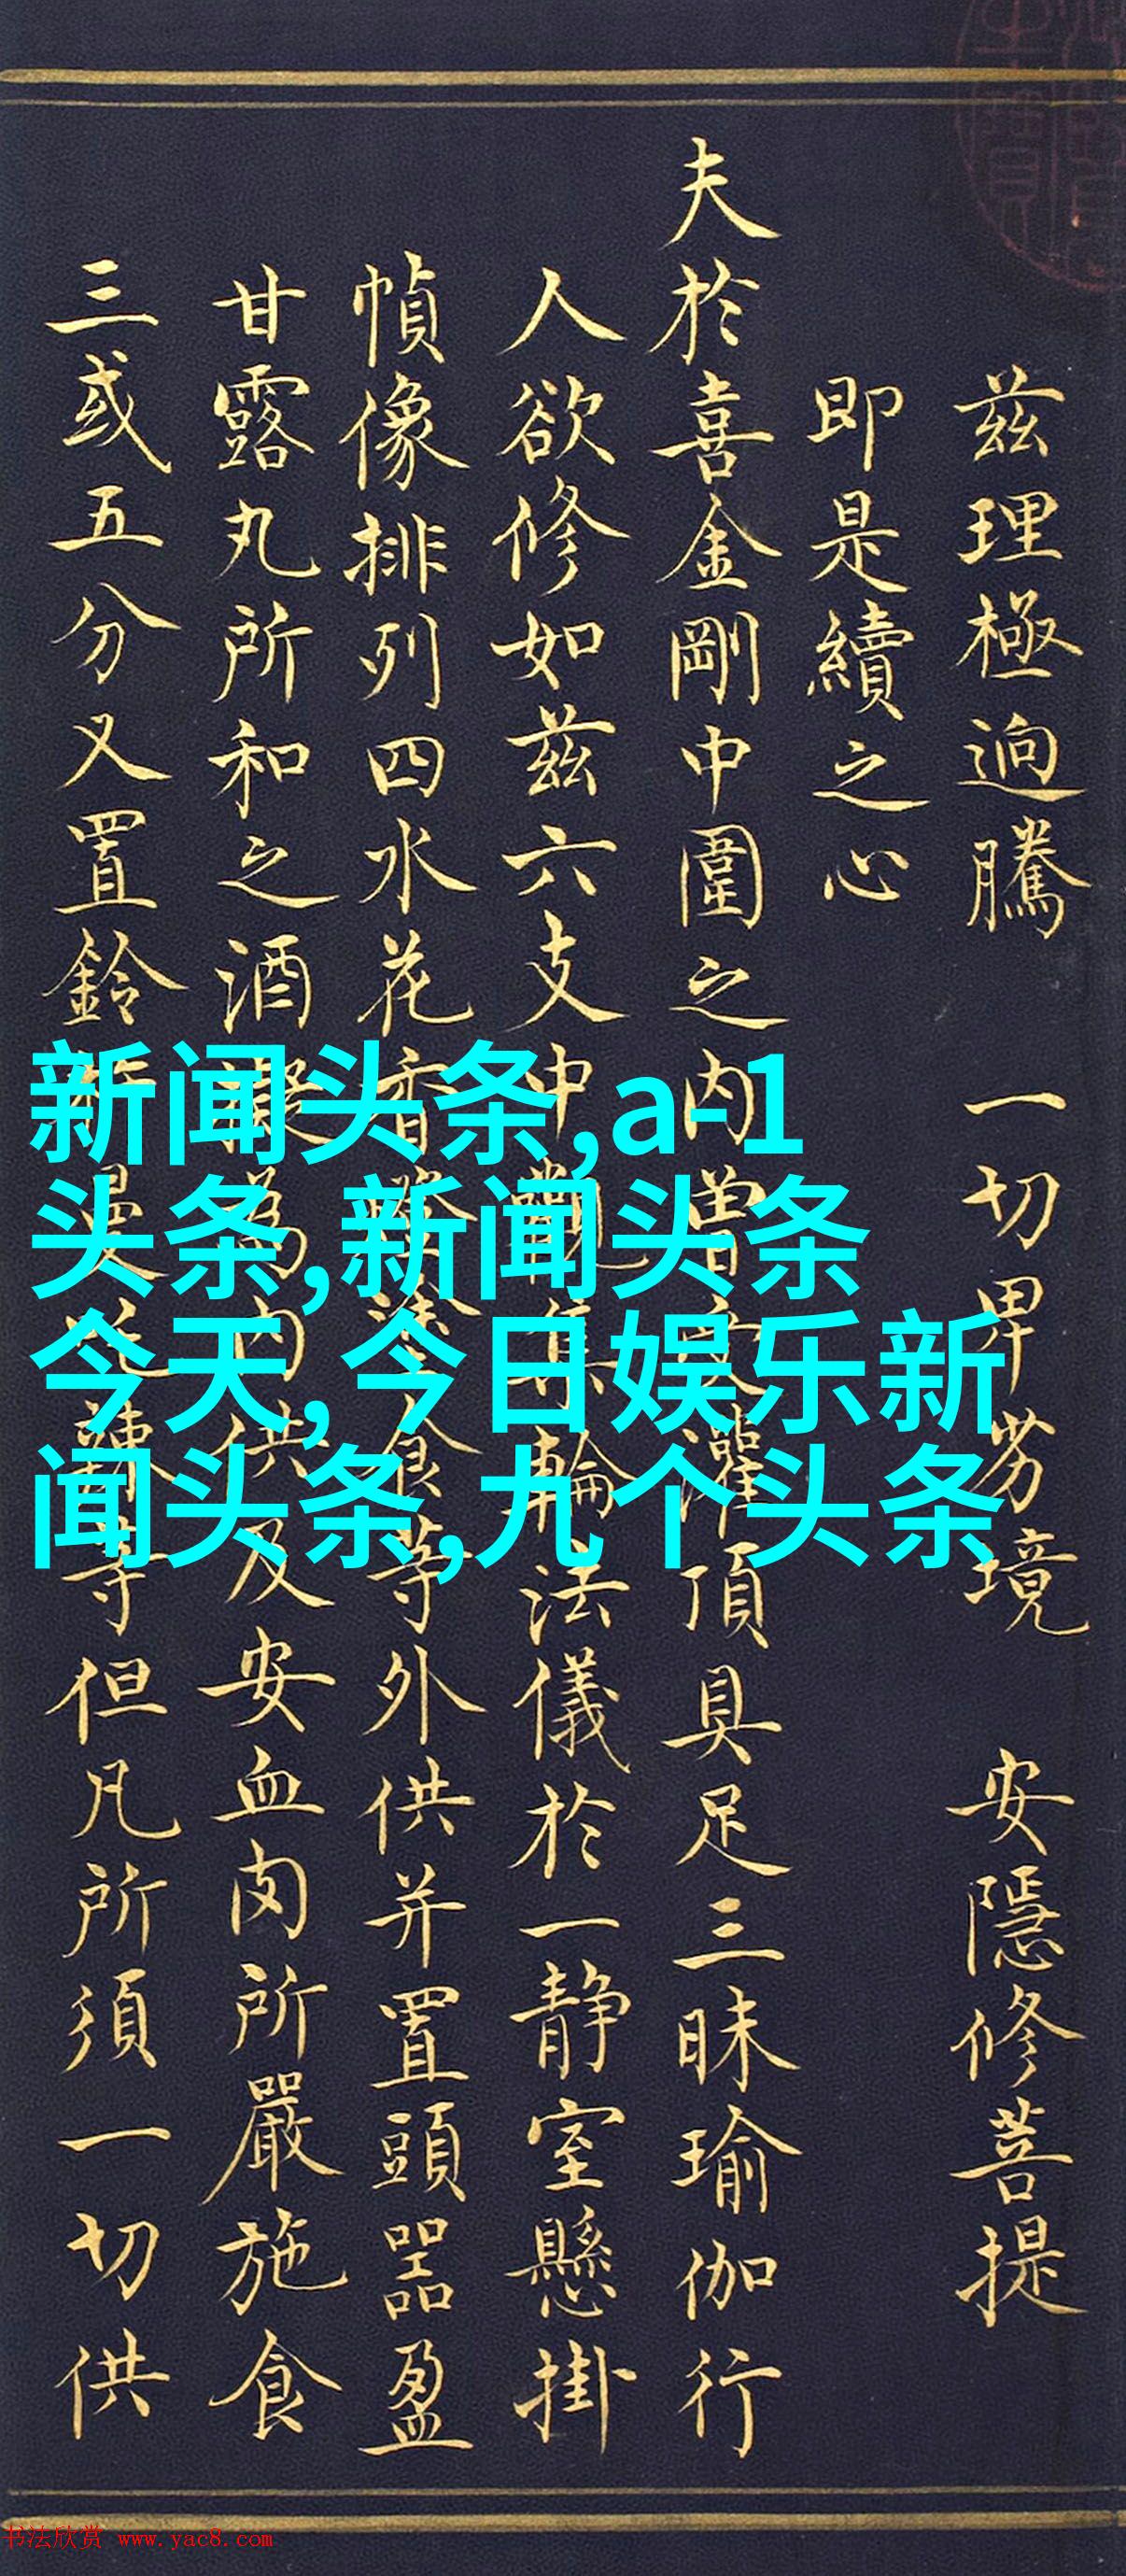 兹理極逈騰 一切卑劣境 安隱修菩提
即是續之心
夫於喜金剛中圍之内曽受灌頂具足三昧瑜伽行
人欲修如兹六支中觀集輪法儀於一静室懸掛
幀像排列四水花香燈塗食等外供并置頭器盈
甘露丸所和之酒凝為内供及安血肉所嚴施食
三或五分又置鈴杵等但凡所須一切供
新闻头条,a-1
头条,新闻头条
今天,今日娱乐新
闻头条,九个头条
书法欣赏 www.yac8.com